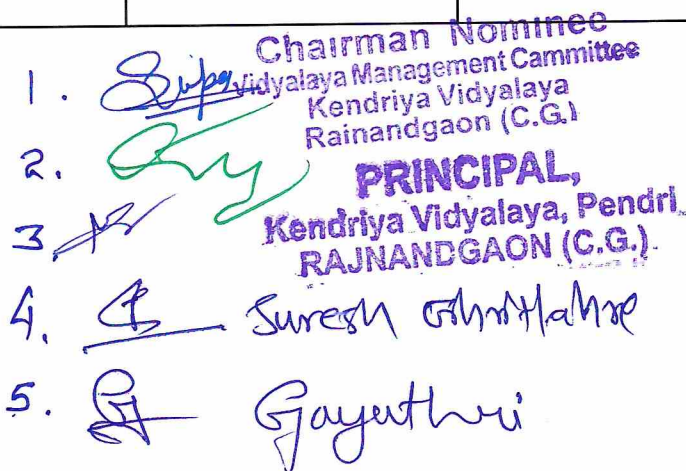 Chairman Nominee
1. Vidyalaya Management Cammittee
Kendriya Vidyalaya
Rainandgaon (C.G.)
2.
PRINCIPAL,
3. Kendriya Vidyalaya, Pendri
RAJNANDGAON (C.G.)
4. Suresh
5. Gayathri